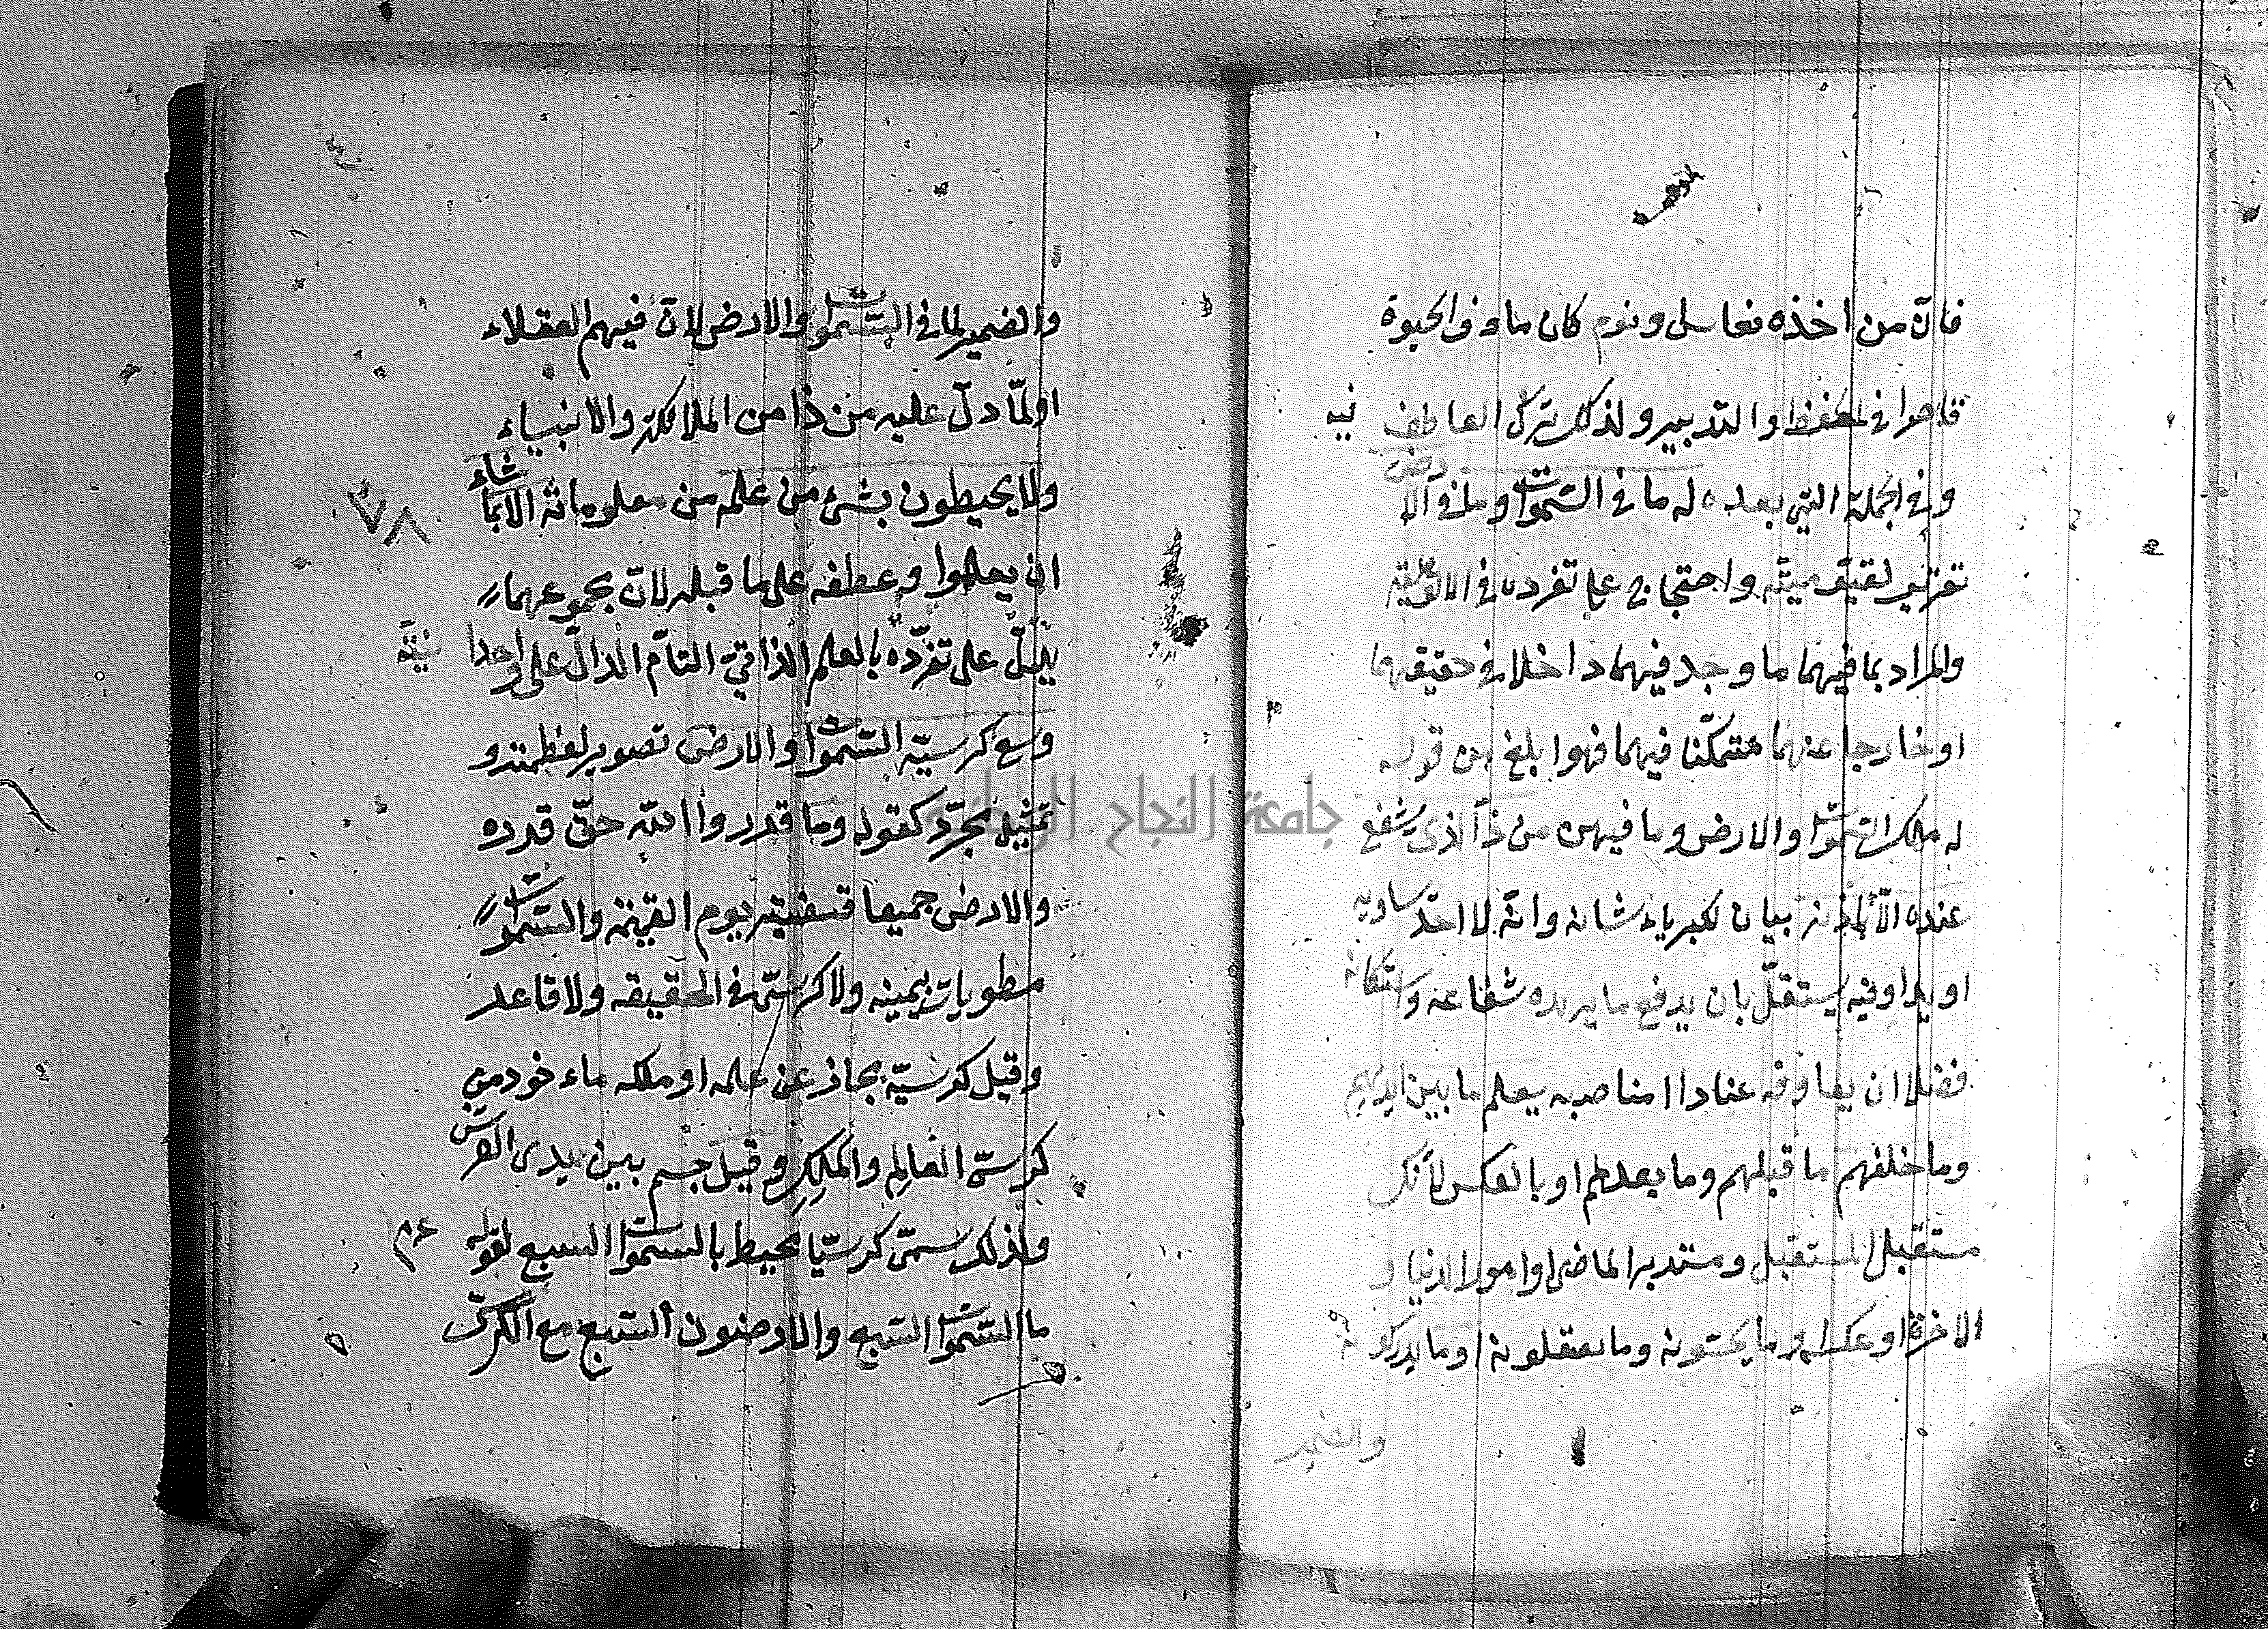 فان من اخذه نعاس او نوم كان ماوف الحيوة
قاصرا في الحفظ والتدبير ولذلك ترك العاطف فيه
وفي الجملة التي بعده له ما في السموات وما في الارض
تقرير لقيوميته واحتجاج على تفرده في الالوهية
والمراد بما فيهما ما وجد فيهما داخلا في حقيقتهما
او خارجا عنهما متمكنا فيهما فهو ابلغ من قوله
له ملك السموات والارض وما فيهن من ذا الذي يشفع
عنده الا باذنه بيان لكبرياء شانه وانه لا احد يساويه
او يدانيه يستقل بان يدفع ما يريده شفاعة واستكانة
فضلا ان يعاوقه عنادا او مناصبة يعلم ما بين ايديهم
وما خلفهم ما قبلهم وما بعدهم او بالعكس لانك
مستقبل المستقبل ومستدبر الماضي او امور الدنيا و
الاخرة او عكسه وما يحسونه وما يعقلونه او ما يدركونه
والضمير
والضمير لما في السموات والارض لان فيهم العقلاء
او لما دل عليه من ذا من الملائكة والانبياء
ولا يحيطون بشيء من علمه من معلوماته الا بما شاء
٧٨
ان يعلموا وعطفه على ما قبله لان مجموعهما
يدل على تفرده بالعلم الذاتي التام الدال على وحدانيته
وسع كرسيه السموات والارض تصوير لعظمته و
تمثيل مجرد كقوله وما قدروا الله حق قدره
والارض جميعا قبضته يوم القيمة والسموات
مطويات بيمينه ولا كرسي في الحقيقة ولا قاعد
وقيل كرسيه مجاز عن علمه او ملكه ماءخوذ من
كرسي العالم والملك وقيل جسم بين يدي العرش
ولذلك سمي كرسيا محيط بالسموات السبع لقوله عم
ما السموات السبع والارضون السبع مع الكرسي
جامعة النجاح الوطنية